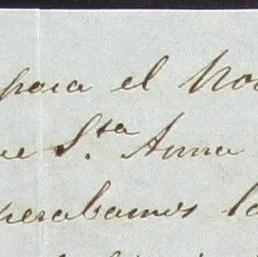 para el Nor
ue S.ta Anna
perabamos la